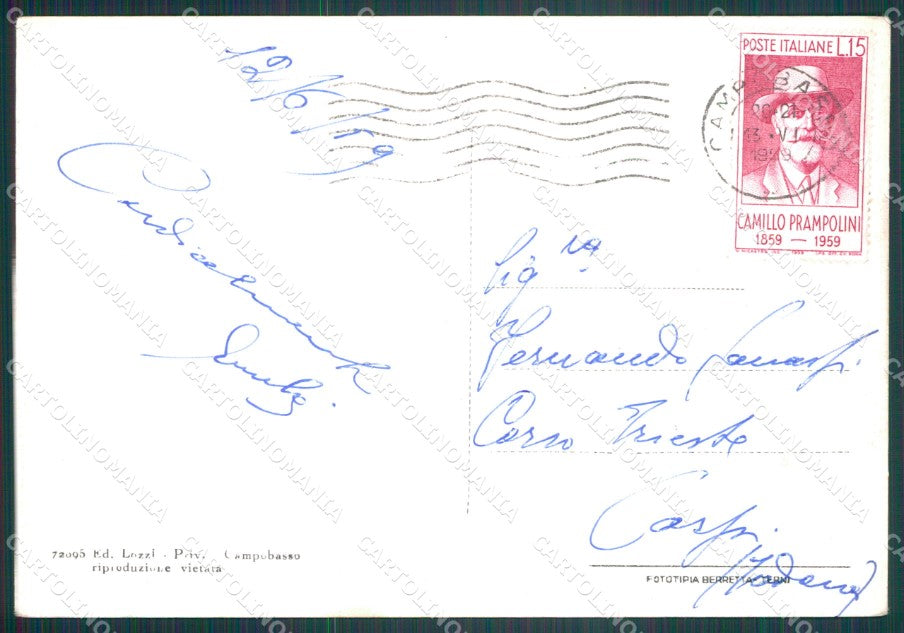 12/6/59
Cordialmente
POSTE ITALIANE L.15
CAMPOBASSO
21
13 VI
1959
CAMILLO PRAMPOLINI
1859 — 1959
Sig.ra
Fernando
Corso Trieste
Carpi
(Modena)
72095 Ed. Lozzi - Priv. Campobasso
riproduzione vietata
FOTOTIPIA BERRETTA - TERNI
CARTOLINOMANIA